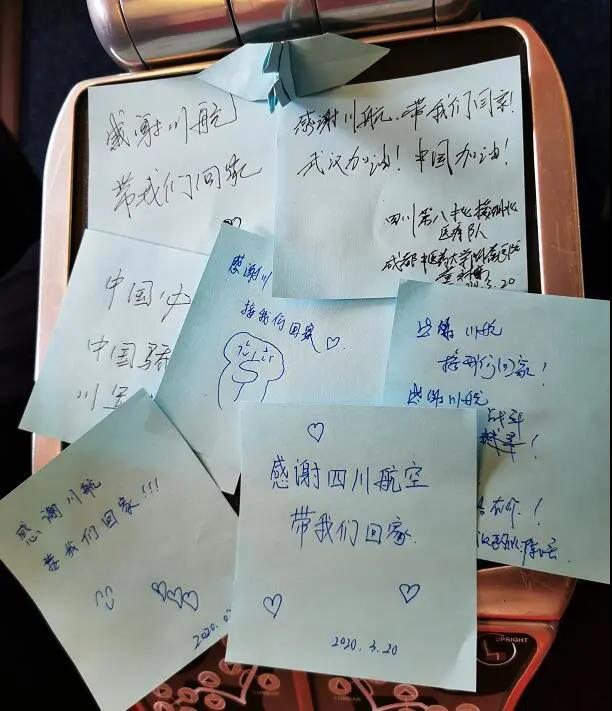 感谢川航
带我们回家
感谢川航、带我们回家!
武汉加油!中国加油!
四川第八批援湖北
医疗队
成都中医药大学附属医院
.3.20
中国
中国骄
川
感谢川
接我们回家
感谢川航
接我们回家!
感谢川航
战斗
!
感谢川航
接我们回家!!!
2020.0
感谢四川航空
带我们回家.
2020.3.20
UPRIGHT
LUMBAR
LUMBAR